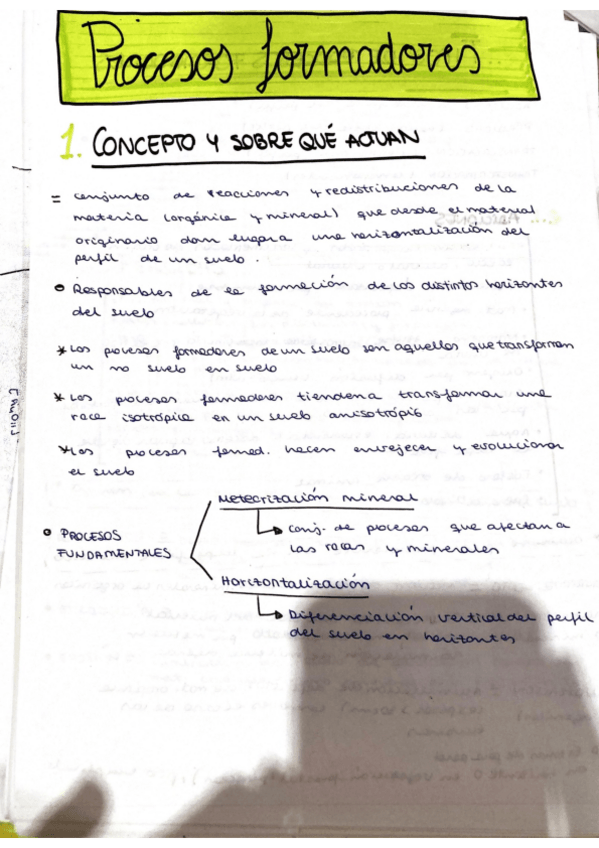 Procesos formadores
1. CONCEPTO Y SOBRE QUÉ ACTUAN
= conjunto de reacciones y redistribuciones de la
materia (orgánica y mineral) que desde el material
originario dan lugar a una horizontalización del
perfil de un suelo.
Responsables de la formación de los distintos horizontes
del suelo
* Los procesos formadores de un suelo son aquellos que transforman
un no suelo en suelo
* Los procesos formadores tienden a transformar una
roca isotrópica en un suelo anisotrópico
* Los procesos formad. hacen envejecer y evolucionar
el suelo
PROCESOS
FUNDAMENTALES
Meteorización mineral
Conj. de procesos que afectan a
las rocas y minerales
Horizontalización
Diferenciación vertical del perfil
del suelo en horizontes